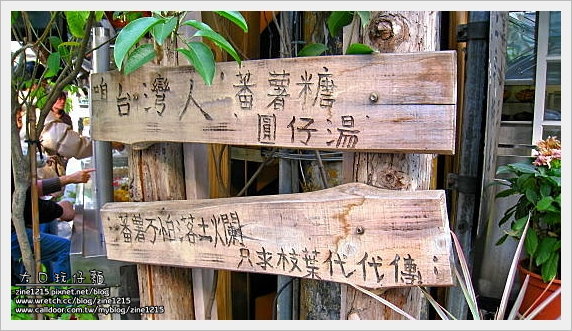 咱台灣人蕃薯糖
圓仔湯
蕃薯不怕落土爛
只求枝葉代代傳
大口玩仔麵
zine1215 pixnet.net/blog
www.wretch.cc/blog/zine1215
www.calldoor.com.tw/myblog/zine1215